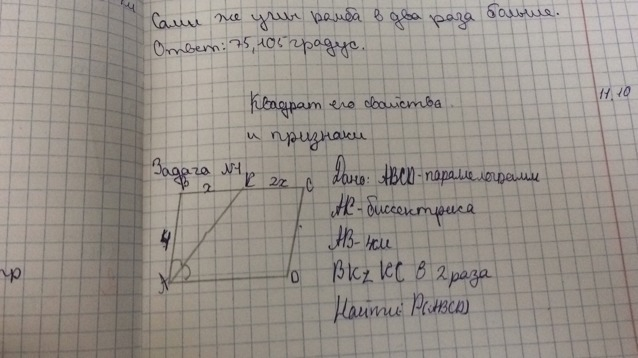 Сами же углы ромба в два раза больше.
Ответ: 75, 105 градус.
11.10
Квадрат его свойства
и признаки
Задача №1
B x K 2x C
4
A D
Дано: ABCD-параллелограмм
AK-биссектриса
AB-4см
BK≠KC в 2 раза
Найти: P(ABCD)